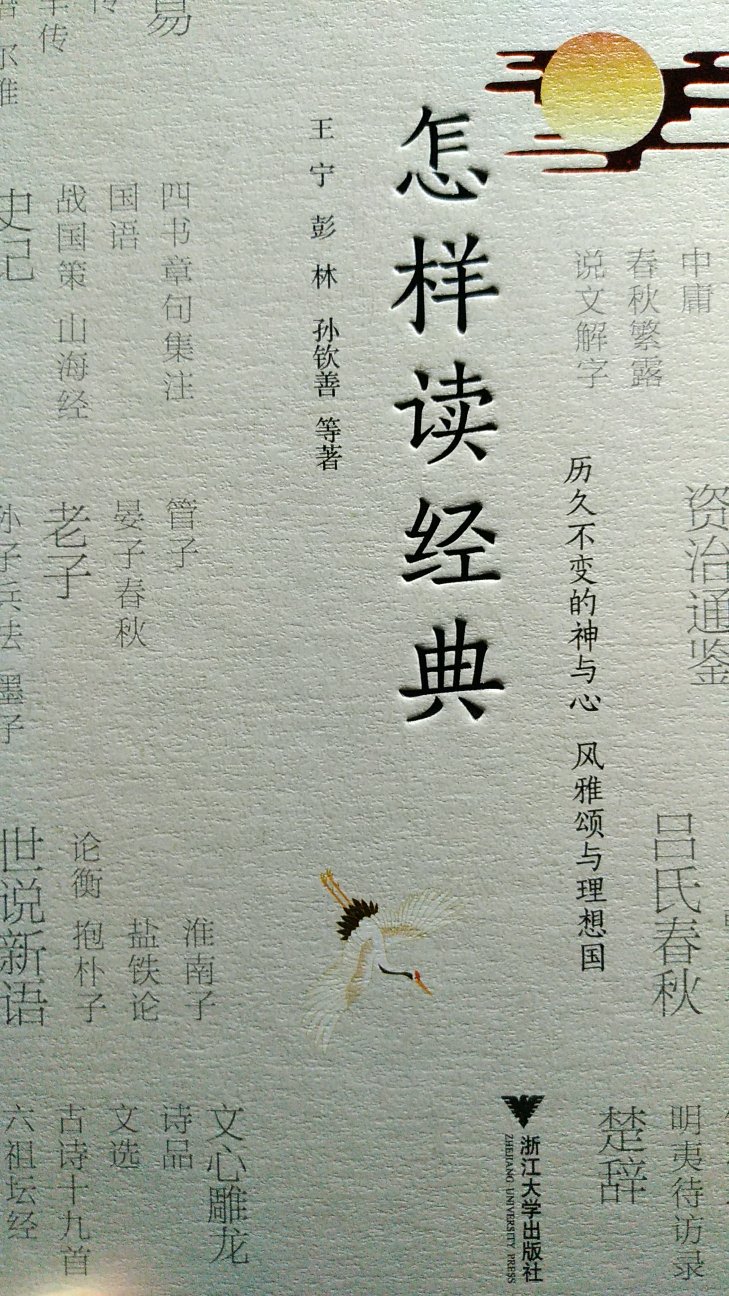 怎样读经典
王宁 彭林 孙钦善 等著
历久不变的神与心 风雅颂与理想国
浙江大学出版社
ZHEJIANG UNIVERSITY PRESS
中庸
春秋繁露
说文解字
资治通鉴
吕氏春秋
楚辞
明夷待访录
易
传
尔雅
四书章句集注
国语
战国策 山海经
史记
管子
晏子春秋
老子
孙子兵法 墨子
淮南子
盐铁论
论衡 抱朴子
世说新语
文心雕龙
诗品
文选
古诗十九首
六祖坛经